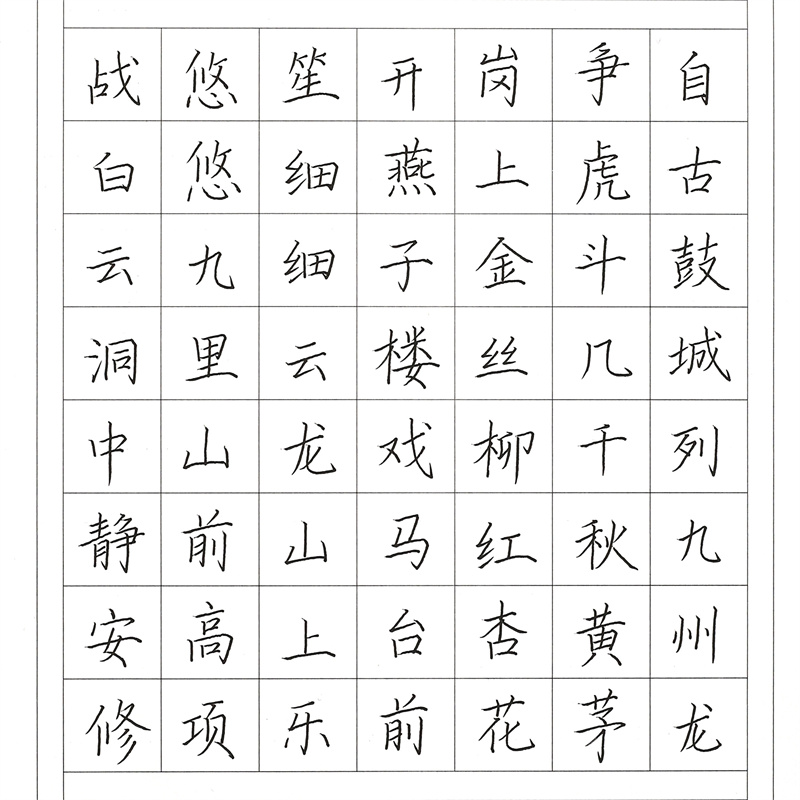 自古鼓城列九州龙
争虎斗几千秋黄茅
岗上金丝柳红杏花
开燕子楼戏马台前
笙细细云龙山上乐
悠悠九里山前高项
战白云洞中静安修